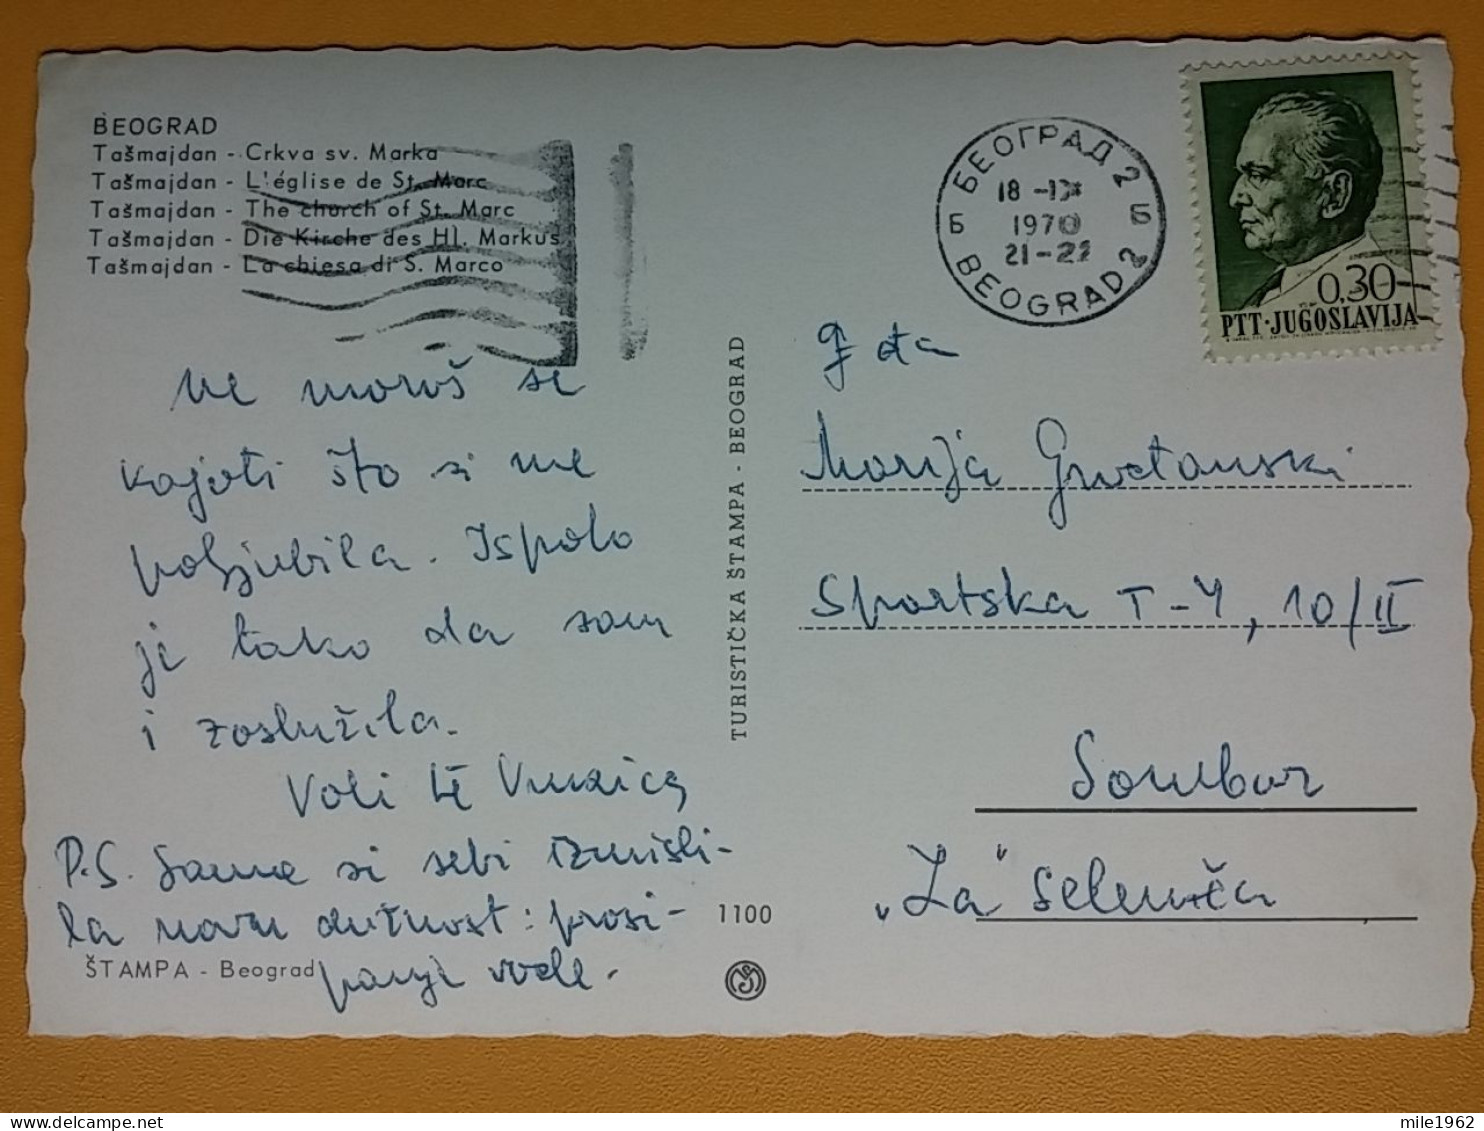 BEOGRAD
Tašmajdan - Crkva sv. Marka
Tašmajdan - L'église de St. Marc
Tašmajdan - The church of St. Marc
Tašmajdan - Die Kirche des Hl. Markus
Tašmajdan - La chiesa di S. Marco
ne moraš se
kajati što si me
poljubila. Ispalo
je tako da sam
i zaslužila.
Voli te
P.S. Same si sebi izmisli-
la novu dužnost: prosi-
panje vode.
ŠTAMPA - Beograd
TURISTIČKA ŠTAMPA - BEOGRAD
1100
БЕОГРАД 2
18
1970
21-22
Б Б
BEOGRAD 2
0,30
PTT·JUGOSLAVIJA
Gđa
Marija
Sportska T-4, 10/II
Sombor
„Za" Selenča
mile1962